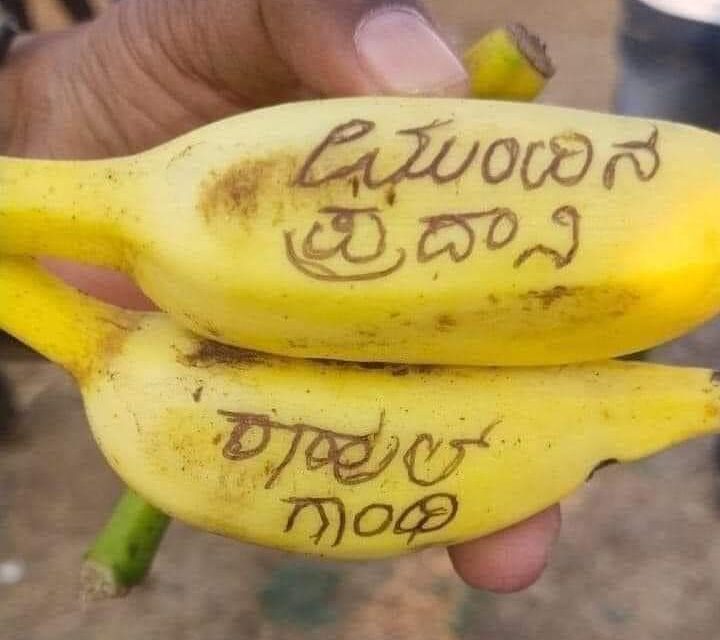 ಮುಂದಿನ
ಪ್ರಧಾನಿ
ರಾಹುಲ್
ಗಾಂಧಿ